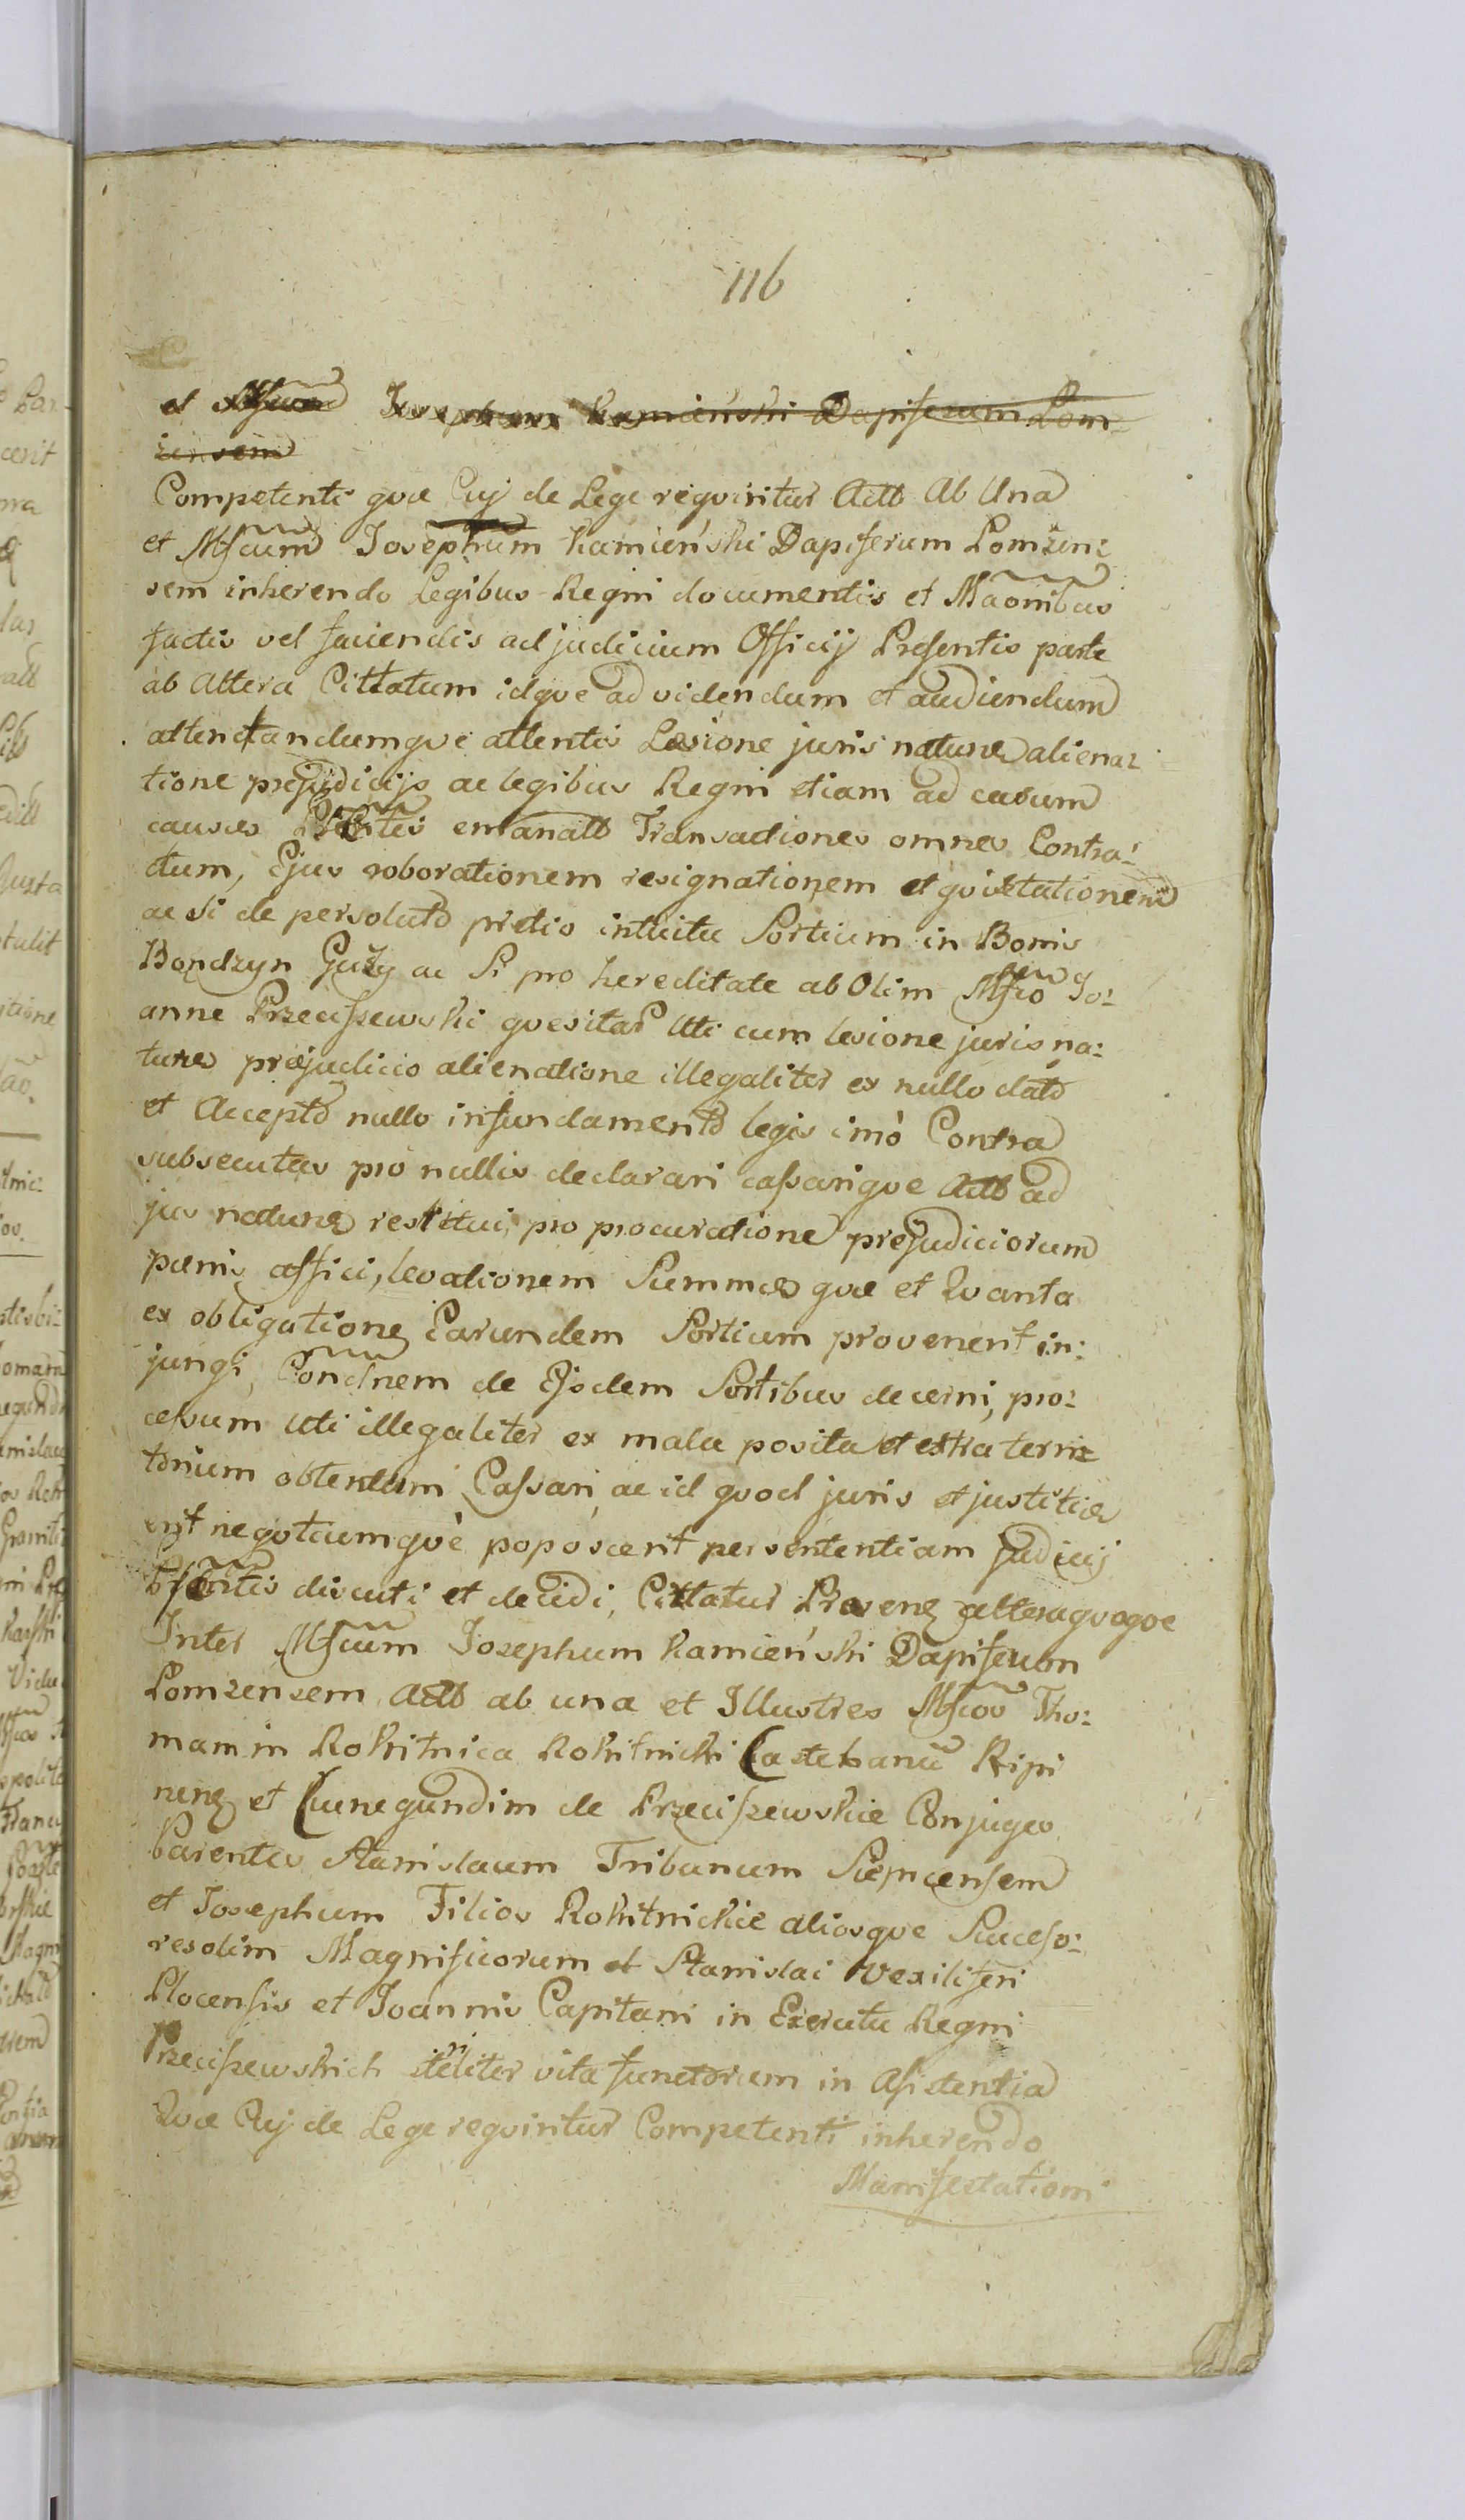 116
et Mſcum Josephum Kamieński Dapiferum Lom-
zensem
Competenti qvæ Cuj de Lege reqviritur Actt Ab Una
et Mſcum Josephum Kamieński Dapiferum Lomżen:
sem inherendo Legibus Regni documentis et Maõnibus
factis vel faciendis ad judicium Officij Presentis parte
ab Altera Cittatum idqve ad videndum et audiendum
attenctandumqve attentis Læsione juris naturæ aliena:
tione prejudicijs ac legibus Regni etiam ad casum
causæs emanatt Transactiones omnes Contra:
ctum, Ejus roborationem resignationem et qvittationem
ac si de persoluto pretio intuitu Sortium in Bonis
Bondzyn Guzy ac Si pro hereditate ab Olim Mſco Jo:
anne Przeciszewski qvesitas Uti cum lesione juris na:
turæs præjudicio alienatione illegaliter ex nullo dato
et Accepto nullo in fundamento legis imò Contra
subsecutas pro nullis declarari caſsariqve Actt ad
jus naturæ restitui, pro procuratione prejudiciorum
pænis affici, levationem Summæs qvæ et Qvanta
ex obligatione Earundem Sortium provenerit in:
jungi, Condnem de Ejsdem Sortibus decerni, pro:
ceſsum Uti illegaliter ex mala posita et extra terri:
torium obtentum Caſsari, ac id qvod juris et justitiæ
erit negotiumqvè poposcerit per sententiam Judicij
discuti et decidi, Cittatur Præsens alteraqvoqve
Inter Mſcum Josephum Kamieński Dapiferum
Lomzensem Actt ab una et Illustres Mſcos Tho:
mam in Rokitnica Rokitnicki Castellanũ Ripi
nens et Cunegundim de Przeciszewskie Conjuges
Parentes Stanislaum Tribunum Sieprcensem
et Josephum Filios Rokitnickie aliosqve Succeſso:
res olim Magnificorum et Stanislai Vexiliferi
Plocensis et Joannis Capitani in Exercitu Regni
Przeciszewskich vita functorum in Aſistentia
Qvæ Cuj de Lege reqviritur Competenti inherendo
Manifestationi